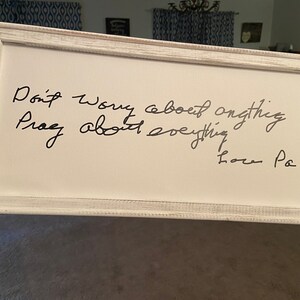 Don't Worry about anythig
Pray about everythig
Love Pa